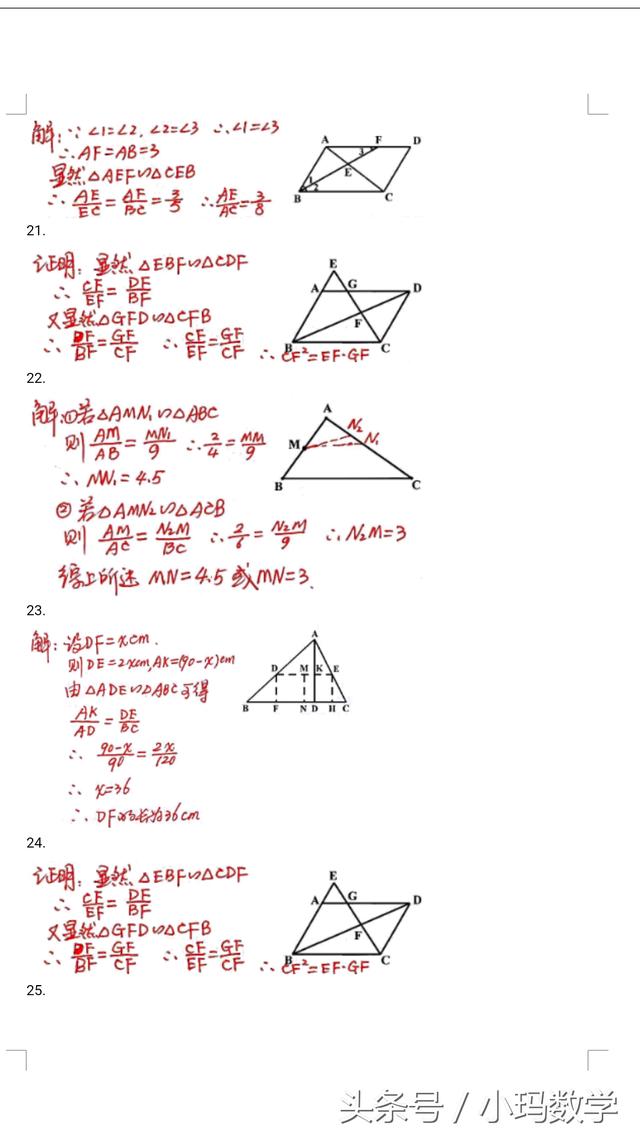 解：∵∠1=∠2，∠2=∠3 ∴∠1=∠3
∴AF=AB=3
显然△AEF∽△CEB
∴AE/EC=AF/BC=3/5 ∴AE/AC=3/8
A F D
3
E
1
2
B C
21.
证明：显然△EBF∽△CDF
∴CF/EF=DF/BF
又显然△GFD∽△CFB
∴DF/BF=GF/CF ∴CF/EF=GF/CF ∴CF²=EF·GF
E
A G D
F
B C
22.
解：①若△AMN₁∽△ABC
则AM/AB=MN₁/9 ∴2/4=MN₁/9
∴MN₁=4.5
②若△AMN₂∽△ACB
则AM/AC=N₂M/BC ∴2/6=N₂M/9 ∴N₂M=3
综上所述 MN=4.5或MN=3.
A
N₂
M N₁
B C
23.
解：设DF=xcm.
则DE=2xcm，AK=(90-x)cm
由△ADE∽△ABC可得
AK/AD=DE/BC
∴(90-x)/90=2x/120
∴x=36
∴DF的长为36cm
A
D M K E
B F N D H C
24.
证明：显然△EBF∽△CDF
∴CF/EF=DF/BF
又显然△GFD∽△CFB
∴DF/BF=GF/CF ∴CF/EF=GF/CF ∴CF²=EF·GF
E
A G D
F
B C
25.
头条号 / 小玛数学